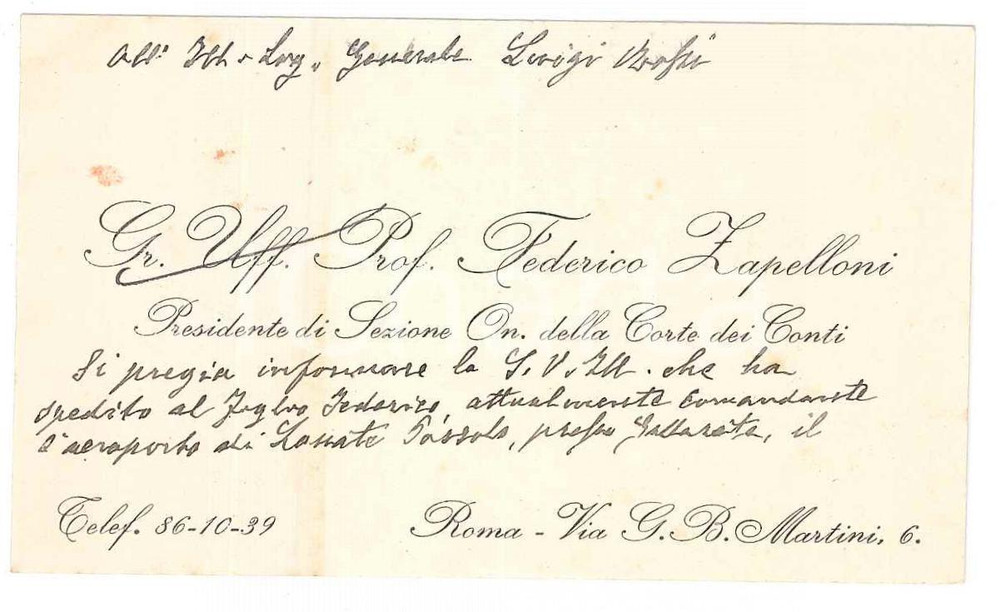 All' Ill. Sig. Generale Luigi
Gr. Uff. Prof. Federico Zapelloni
Presidente di Sezione On. della Corte dei Conti
Si pregia informare la S. V. Ill. che ha
spedito al figlio Federico, attualmente Comandante
l'aeroporto di Lonate Pozzolo, presso Gallarate, il
Telef. 86-10-39
Roma - Via G. B. Martini, 6.